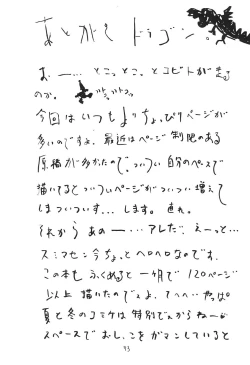 あとがき ドラゴン。
お――… とことことことコビトが走る
のか。
今回はいつもよりちょっぴりページが
多いのですよ。最近はページ制限のある
原稿が多かたので、ついつい自分のペースで
描いてるとついついページがついつい増えて
しまついつます…します。直れ。
それから あの――…アレだ、えーっと…
スミマセン今ちょっとヘロヘロなのです。
この本もふくめると一ヶ月で120ページ
以上描いたのですよ。てへへ…やっぱ
夏と冬のコミケは特別ですからねー
スペースでおしっこをガマンしていると
93